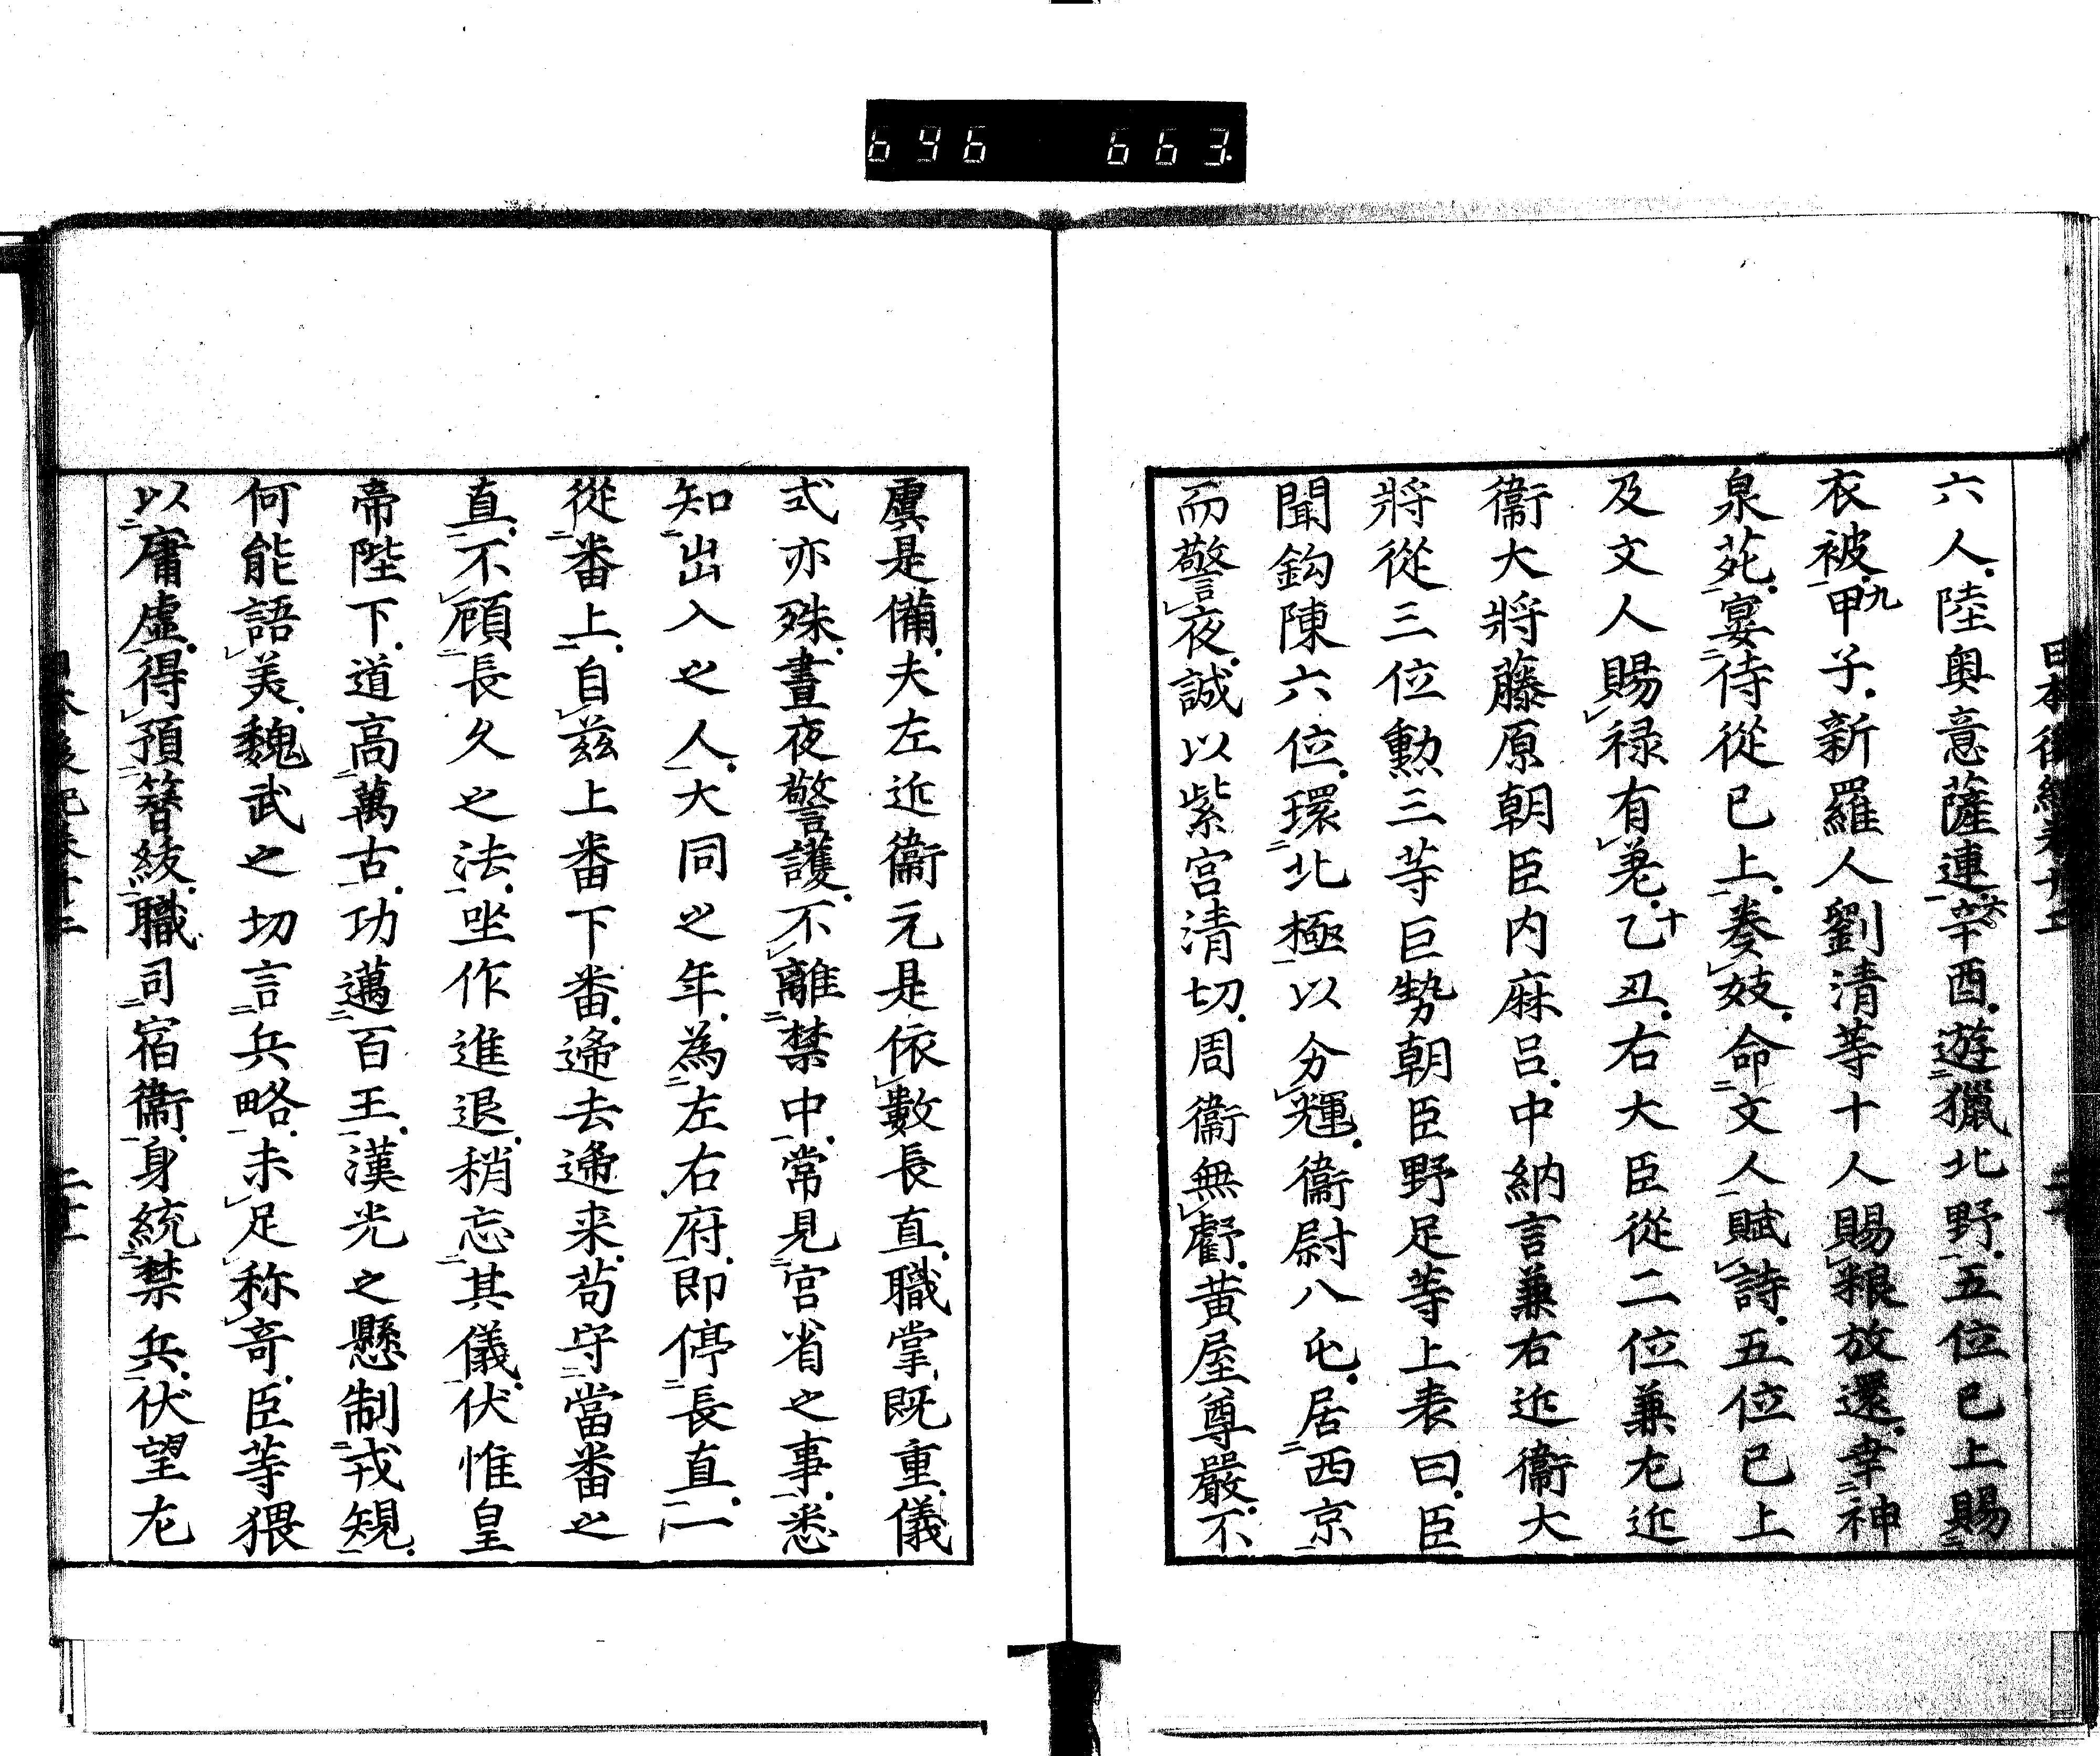 696 663
六人。陸奥意薩連。辛酉。遊獵北野。五位已上賜
衣被。甲子。新羅人劉清等十人賜粮放還。幸神
泉苑。宴侍從已上。奏妓。命文人賦詩。五位已上
及文人賜禄有差。乙丑。右大臣從二位兼左近
衞大將藤原朝臣内麻呂。中納言兼右近衞大
將從三位勳三等巨勢朝臣野足等上表曰。臣
聞鈎陳六位。環北極以分輝。衞尉八屯。居西京
而警夜。誠以紫宮清切。周衞無虧。黄屋尊嚴。不
虞是備。夫左近衞元是依數長直。職掌既重。儀
式亦殊。晝夜警護。不離禁中。常見宮省之事。悉
知出入之人。大同之年。為左右府。即停長直。一
從番上。自茲上番下番。遞去遞来。苟守當番之
直。不顧長久之法。坐作進退。稍忘其儀。伏惟皇
帝陛下。道高萬古。功邁百王。漢光之懸制戎規。
何能語美。魏武之切言兵略。未足称奇。臣等猥
以庸虚。得預簪紱。職司宿衞。身統禁兵。伏望左